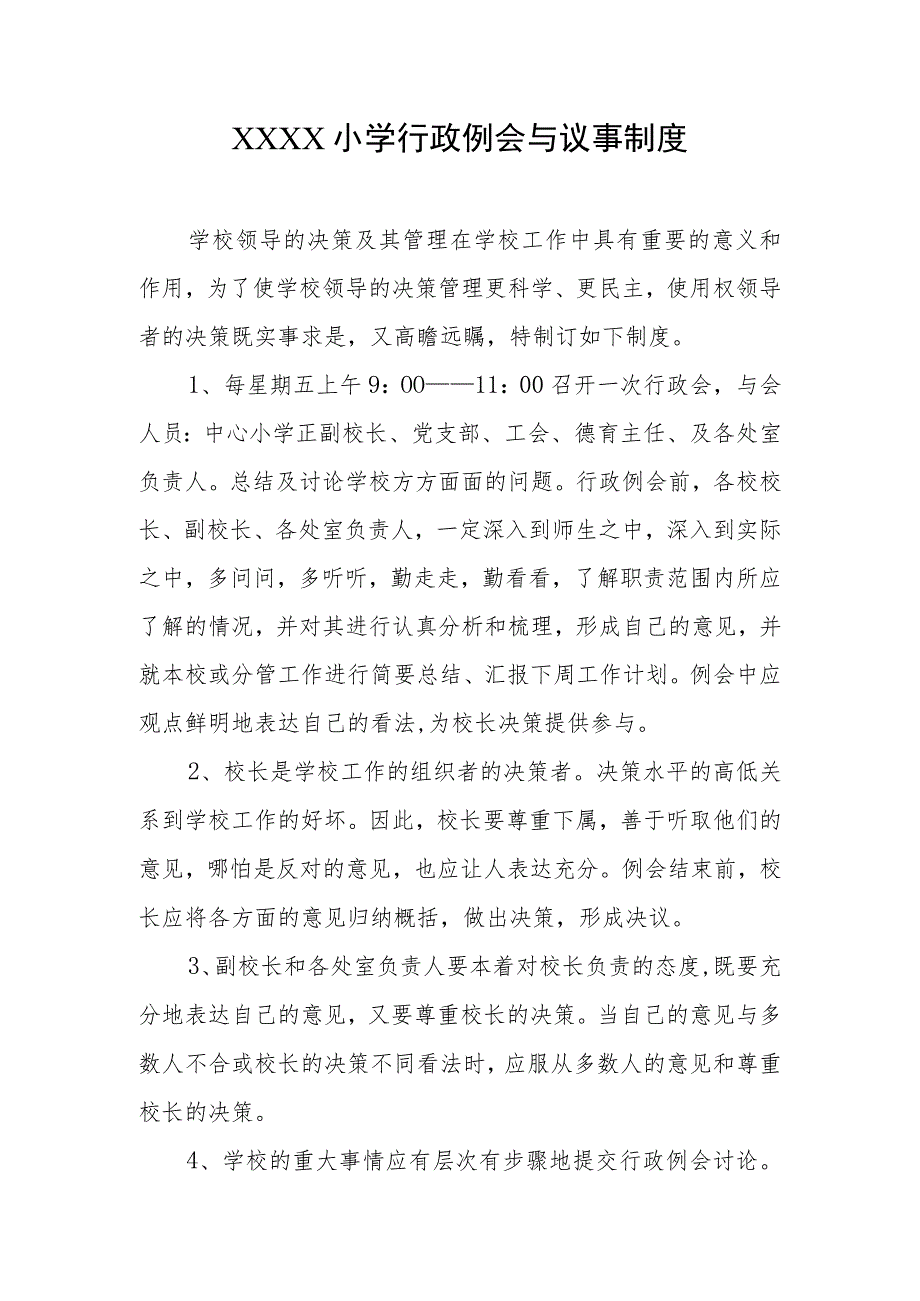 XXXX 小学行政例会与议事制度
学校领导的决策及其管理在学校工作中具有重要的意义和
作用，为了使学校领导的决策管理更科学、更民主，使用权领导
者的决策既实事求是，又高瞻远瞩，特制订如下制度。
1、每星期五上午 9：00——11：00 召开一次行政会，与会
人员：中心小学正副校长、党支部、工会、德育主任、及各处室
负责人。总结及讨论学校方方面面的问题。行政例会前，各校校
长、副校长、各处室负责人，一定深入到师生之中，深入到实际
之中，多问问，多听听，勤走走，勤看看，了解职责范围内所应
了解的情况，并对其进行认真分析和梳理，形成自己的意见，并
就本校或分管工作进行简要总结、汇报下周工作计划。例会中应
观点鲜明地表达自己的看法,为校长决策提供参与。
2、校长是学校工作的组织者的决策者。决策水平的高低关
系到学校工作的好坏。因此，校长要尊重下属，善于听取他们的
意见，哪怕是反对的意见，也应让人表达充分。例会结束前，校
长应将各方面的意见归纳概括，做出决策，形成决议。
3、副校长和各处室负责人要本着对校长负责的态度,既要充
分地表达自己的意见，又要尊重校长的决策。当自己的意见与多
数人不合或校长的决策不同看法时，应服从多数人的意见和尊重
校长的决策。
4、学校的重大事情应有层次有步骤地提交行政例会讨论。